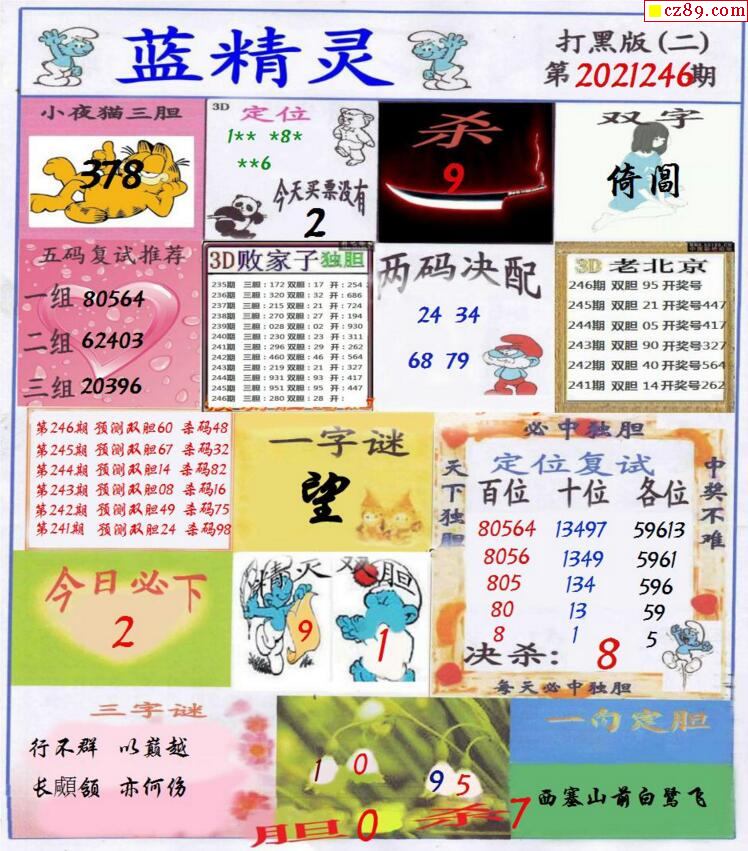 cz89.com
蓝精灵
打黑版(二)
第2021246期
小夜猫三胆
378
3D 定位
1** *8*
**6
今天买票没有
2
杀
9
双字
倚閶
五码复试推荐
一组 80564
二组 62403
三组 20396
3D败家子独胆
235期 三胆:172 双胆:17 开:254
236期 三胆:320 双胆:32 开:686
237期 三胆:215 双胆:21 开:724
238期 三胆:270 双胆:27 开:194
239期 三胆:028 双胆:02 开:930
240期 三胆:230 双胆:23 开:311
241期 三胆:296 双胆:29 开:262
242期 三胆:460 双胆:46 开:564
243期 三胆:219 双胆:21 开:327
244期 三胆:931 双胆:93 开:417
245期 三胆:951 双胆:95 开:447
246期 三胆:280 双胆:28 开:
两码决配
24 34
68 79
3D 老北京
246期 双胆 95 开奖号
245期 双胆 21 开奖号447
244期 双胆 05 开奖号417
243期 双胆 90 开奖号327
242期 双胆 40 开奖号564
241期 双胆 14 开奖号262
第246期 预测双胆60 杀码48
第245期 预测双胆67 杀码32
第244期 预测双胆14 杀码82
第243期 预测双胆08 杀码16
第242期 预测双胆49 杀码75
第241期 预测双胆24 杀码98
一字谜
望
必中独胆
天下独胆
中奖不难
定位复试
百位 十位 各位
80564 13497 59613
8056 1349 5961
805 134 596
80 13 59
8 1 5
决杀: 8
每天必中独胆
今日必下
2
精灵双胆
9 1
三字谜
行不群 以巅越
长顑颔 亦何伤
1 0 9 5
胆0 杀7
一句定胆
西塞山前白鹭飞